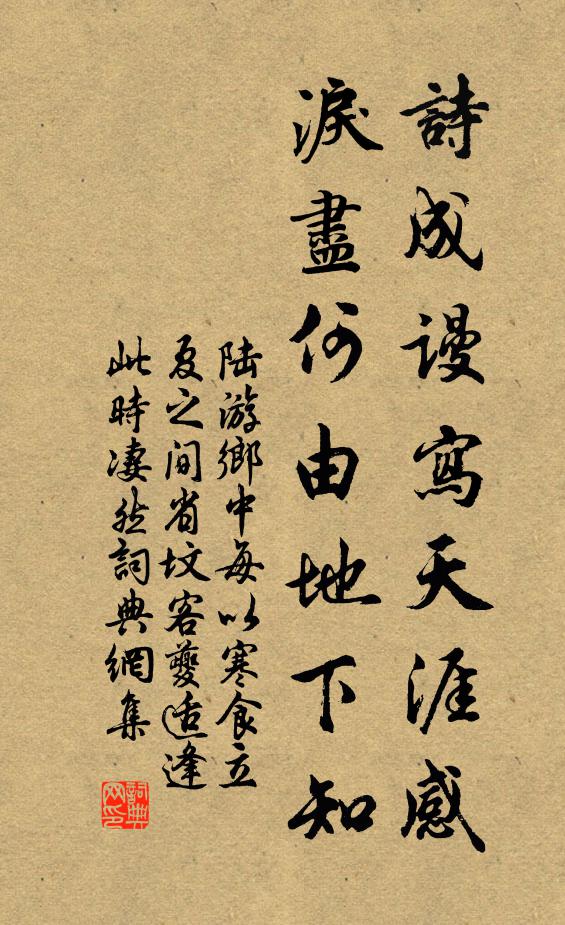 詩成謾寫天涯感
淚盡何由地下知
陆游鄉中每以寒食立
夏之间省坟客夔适逢
此時凄然詞典網集
詞典网印